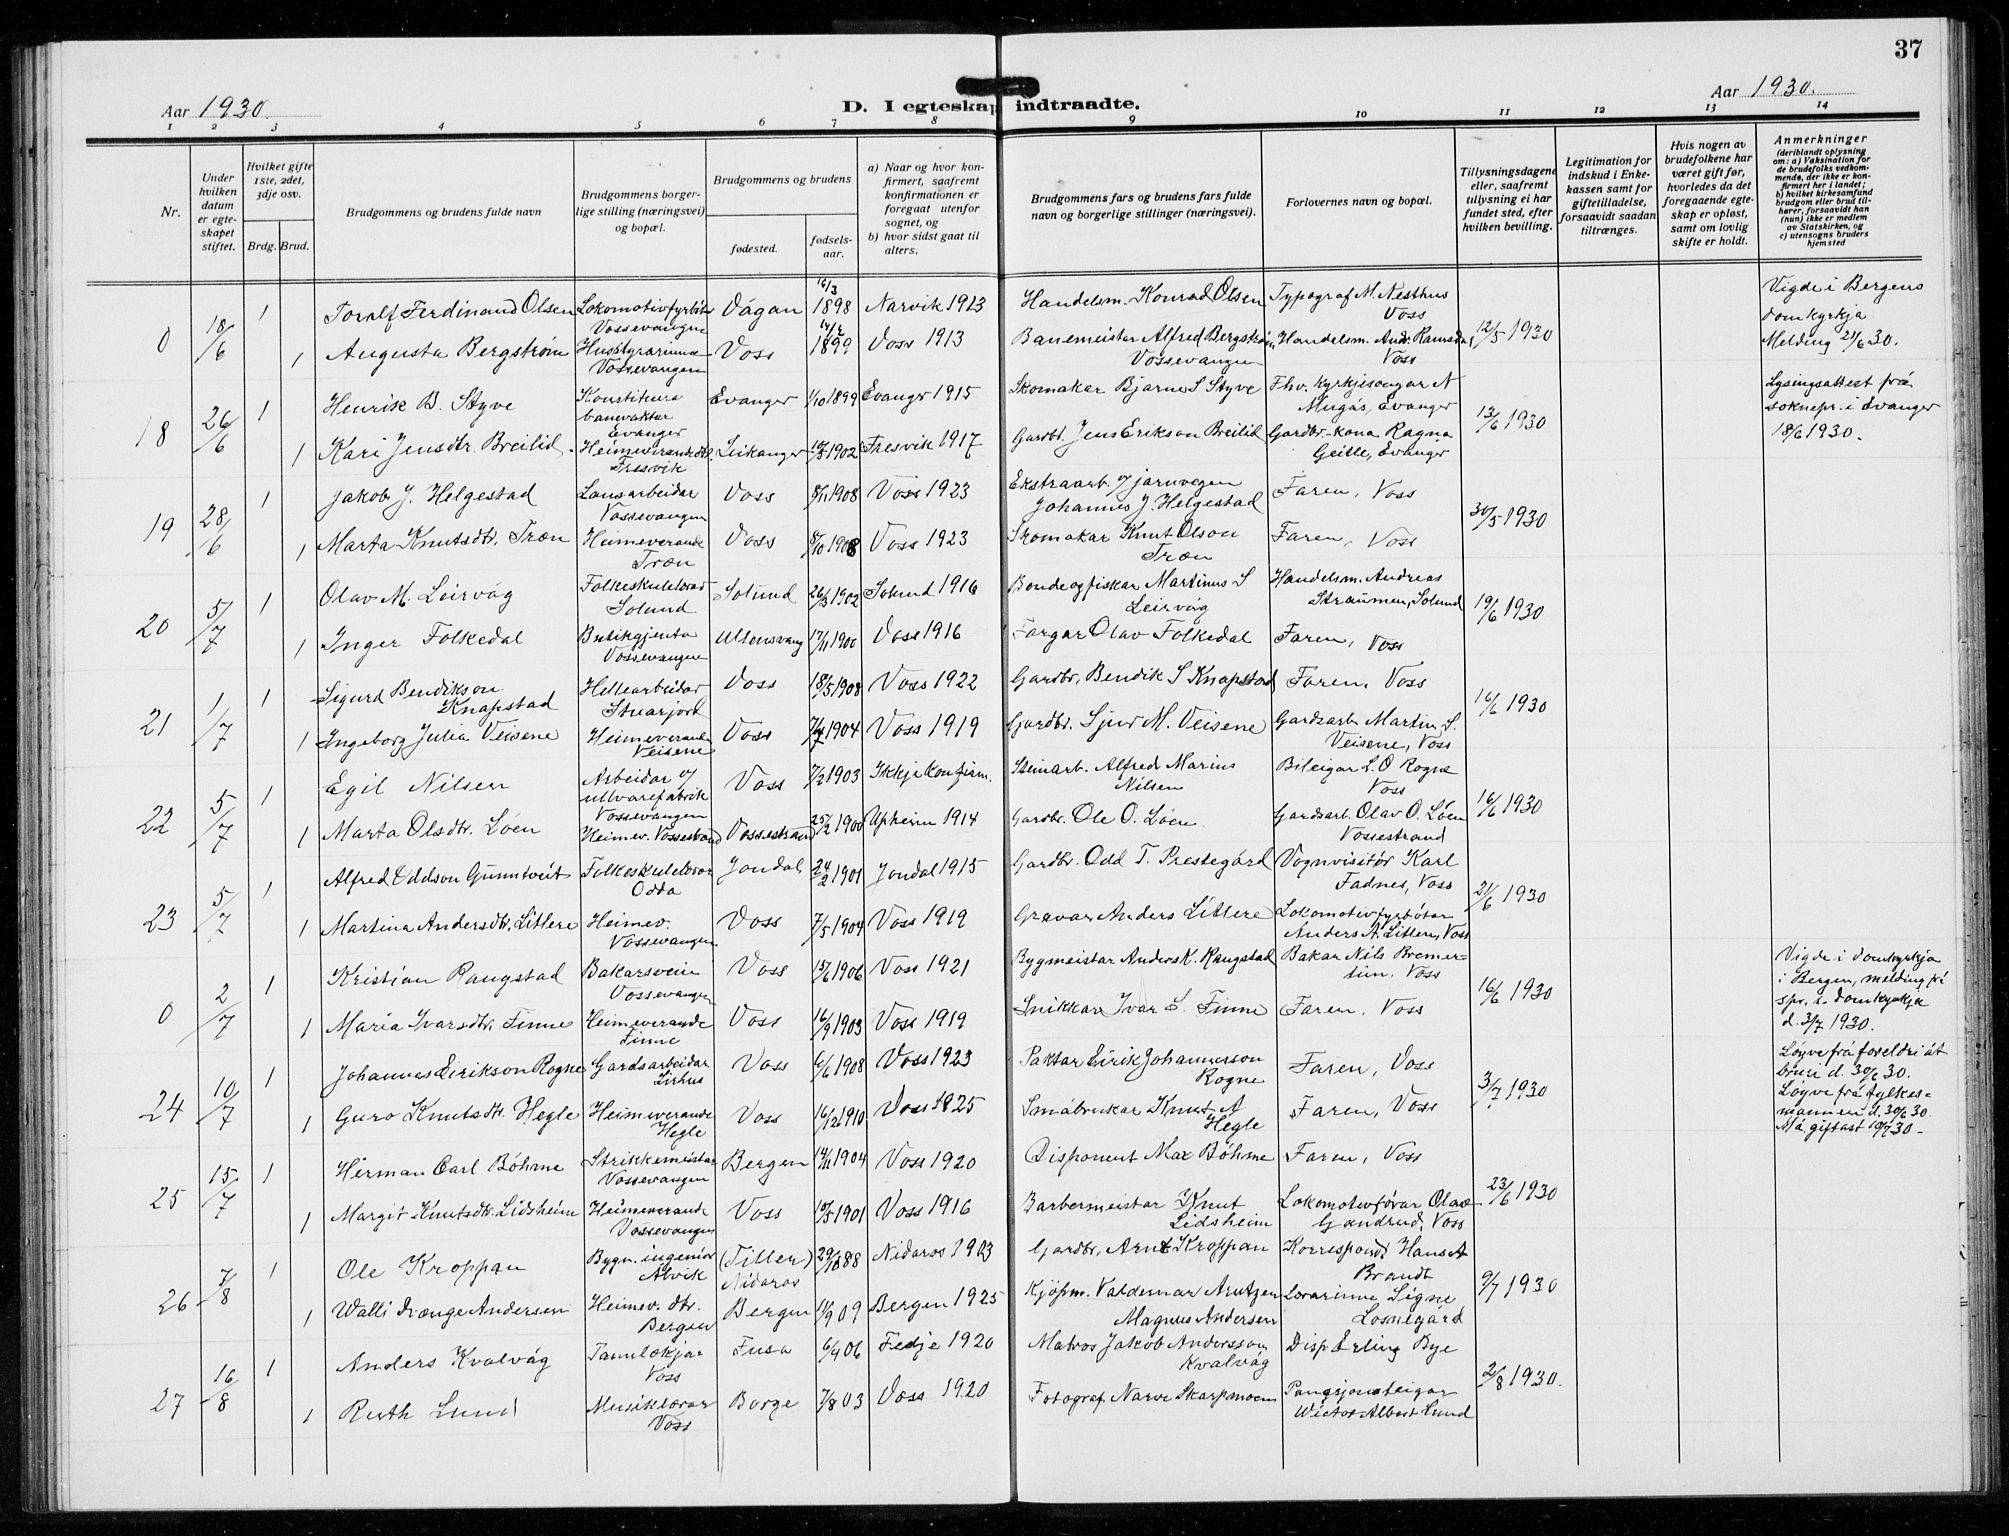 37
Aar 1930.
D. I egteskap indtraadte.
Aar 1930.
1 2 3 4 5 6 7 8 9 10 11 12 13 14
Nr.
Under hvilken datum er egteskapet stiftet.
Hvilket gifte 1ste, 2det, 3dje osv.
Brdg. Brud.
Brudgommens og brudens fulde navn
Brudgommens borgerlige stilling (næringsvei) og bopæl.
Brudgommens og brudens
fødested.
fødselsaar.
a) Naar og hvor konfirmert, saafremt konfirmationen er foregaat utenfor sognet, og
b) hvor sidst gaat til alters.
Brudgommens fars og brudens fars fulde navn og borgerlige stillinger (næringsvei).
Forlovernes navn og bopæl.
Tillysningsdagene eller, saafremt tillysning ei har fundet sted, efter hvilken bevilling.
Legitimation for indskud i Enkekassen samt for giftetilladelse, forsaavidt saadan tiltrænges.
Hvis nogen av brudefolkene har været gift før, hvorledes da det foregaaende egteskap er opløst, samt om lovlig skifte er holdt.
Anmerkninger
(deriblandt oplysning om: a) Vaksination for de brudefolks vedkommende, der ikke er konfirmert her i landet; b) hvilket kirkesamfund brudgom eller brud tilhører, forsaavidt han (hun) ikke er medlem av Statskirken, og c) utensogns bruders hjemsted
0 18/6 1 Toralf Ferdinand Olsen Vossevangen Vågan 16/3 1898 Narvik 1913 Handelsm. Konrad Olsen Typograf M. Nesthus Voss 12/5 1930 Vigde i Bergens domkyrkja Melding 21/6 30.
1 Augusta Bergstrøm Vossevangen Voss 1899 Voss 1913 Banemeister Alfred Bergstrøm Vossevangen Handelsm. And. Voss
18 26/6 1 Henrik B. Styve banevakter Evanger Evanger 1/10 1899 Evanger 1915 Skomakar Bjarne S Styve Fhv. kyrkjesongar N Mugås, Evanger 13/6 1930 Lysingsattest frå soknepr. i Evanger 18/6 1930.
1 Kari Jensdtr. Breilid Fresvik Leikanger 1902 Fresvik 1917 Gardbr. Jens Erikson Breilid Gardbr.-kona Ragna Geitle, Evanger
19 28/6 1 Jakob J. Helgestad Lausarbeidar Vossevangen Voss 8/11 1908 Voss 1923 Ekstraarb. v/ jarnvegen Johannes J. Helgestad Faren, Voss 30/5 1930
1 Marta Knutsdtr. Træn Heimeverande Træn Voss 8/10 1908 Voss 1923 Skomakar Knut Olson Træn Faren, Voss
20 5/7 1 Olav M. Leirvåg Folkeskulelærar Solund Solund 26/3 1902 Solund 1916 Bonde og fiskar Martinus S Leirvåg Handelsm. Andreas Straumen, Solund 19/6 1930
1 Inger Folkedal Butikgjenta Vossevangen Ullensvang 17/11 1900 Voss 1916 Fargar Olav Folkedal Faren, Voss
21 1/7 1 Sigurd Bendikson Knapstad Hellearbeidar Voss 18/5 1908 Voss 1922 Gardbr. Bendik S Knapstad Faren, Voss 16/6 1930
1 Ingeborg Julia Veisene Heimeverande Veisene Voss 1904 Voss 1919 Gardbr. Sjur M. Veisene Gardsarb. Martin S. Veisene, Voss
22 5/7 1 Egil Nilsen Arbeidar v/ ullvarefabrik Vossevangen Voss 7/2 1903 Ikkje konfirm. Steinarb. Alfred Marius Nilsen Bileigar L. O Rogne Voss 16/6 1930
1 Marta Olsdtr. Løen Heimev. Vossestrand Vossestrand 25/2 1900 Upheim 1914 Gardbr. Ole O. Løen Gardsarb. Olav O. Løen Vossestrand
23 5/7 1 Alfred Oddson Folkeskulelærar Odda Jondal 24/2 1901 Jondal 1915 Gardbr. Odd T. Prestegård Vognvisitør Karl Fadnes, Voss 21/6 1930
1 Martina Andersdtr. Littere Heimev. Vossevangen Voss 7/5 1904 Voss 1919 Gravar Anders Littere Lokomotivfyrbøtar Anders A. Littere, Voss
0 2/7 1 Kristian Rangstad Bakarsvein Vossevangen Voss 15/6 1906 Voss 1921 Bygmeistar Anders K. Rangstad Bakar Nils Voss 16/6 1930 Vigde i domkyrkja i Bergen, melding frå spr. i domkyrkja d. 3/7 1930.
1 Maria Ivarsdtr. Finne Heimeverande Finne Voss 16/9 1903 Voss 1919 Snikkar Ivar S. Finne Faren, Voss
24 10/7 1 Johannes Eirikson Rogne Gardsarbeidar Lirhus Voss 6/6 1908 Voss 1923 Paktar Eirik Johannesson Rogne Faren, Voss 3/7 1930 Løyve frå foreldri åt d. 30/6 30. Løyve frå fylkesmannen d. 30/6 30. Må giftast 10/7 30.
1 Guro Knutsdtr. Hegle Heimeverande Hegle Voss 16/12 1910 Voss 1925 Småbrukar Knut A Hegle Faren, Voss
25 15/7 1 Herman Carl Böhme Strikkemeistar Vossevangen Bergen 14/11 1904 Voss 1920 Disponent Max Böhme Faren, Voss 23/6 1930
1 Margit Knutsdtr. Lidsheim Heimeverande Vossevangen Voss 1901 Voss 1916 Barbermeistar Knut Lidsheim Lokomotivførar Olav Gandrud, Voss
26 7/8 1 Ole Kroppan Bygn.ingeniør Ålvik (Tiller) Nidaros 29/10 88 Nidaros 1903 Gardbr. Arnt Kroppan Hans A Brandt 9/7 1930
1 Walli Andersen Heimev. dtr. Bergen Bergen 11/9 09 Bergen 1925 Kjøpm. Valdemar Arntzen Magnus Andersen Lærarinne Signe Losnegård
27 16/8 1 Anders Kvalvåg Tannlækjar Voss Fusa 6/4 06 Fedje 1920 Matros Jakob Andersson Kvalvåg Disp. Erling Bye 2/8 1930.
1 Ruth Lund Musiklærar Voss Borge 7/8 03 Voss 1920 Fotograf Narve Skarpmoen Pensjonateigar Wictor Albert Lund